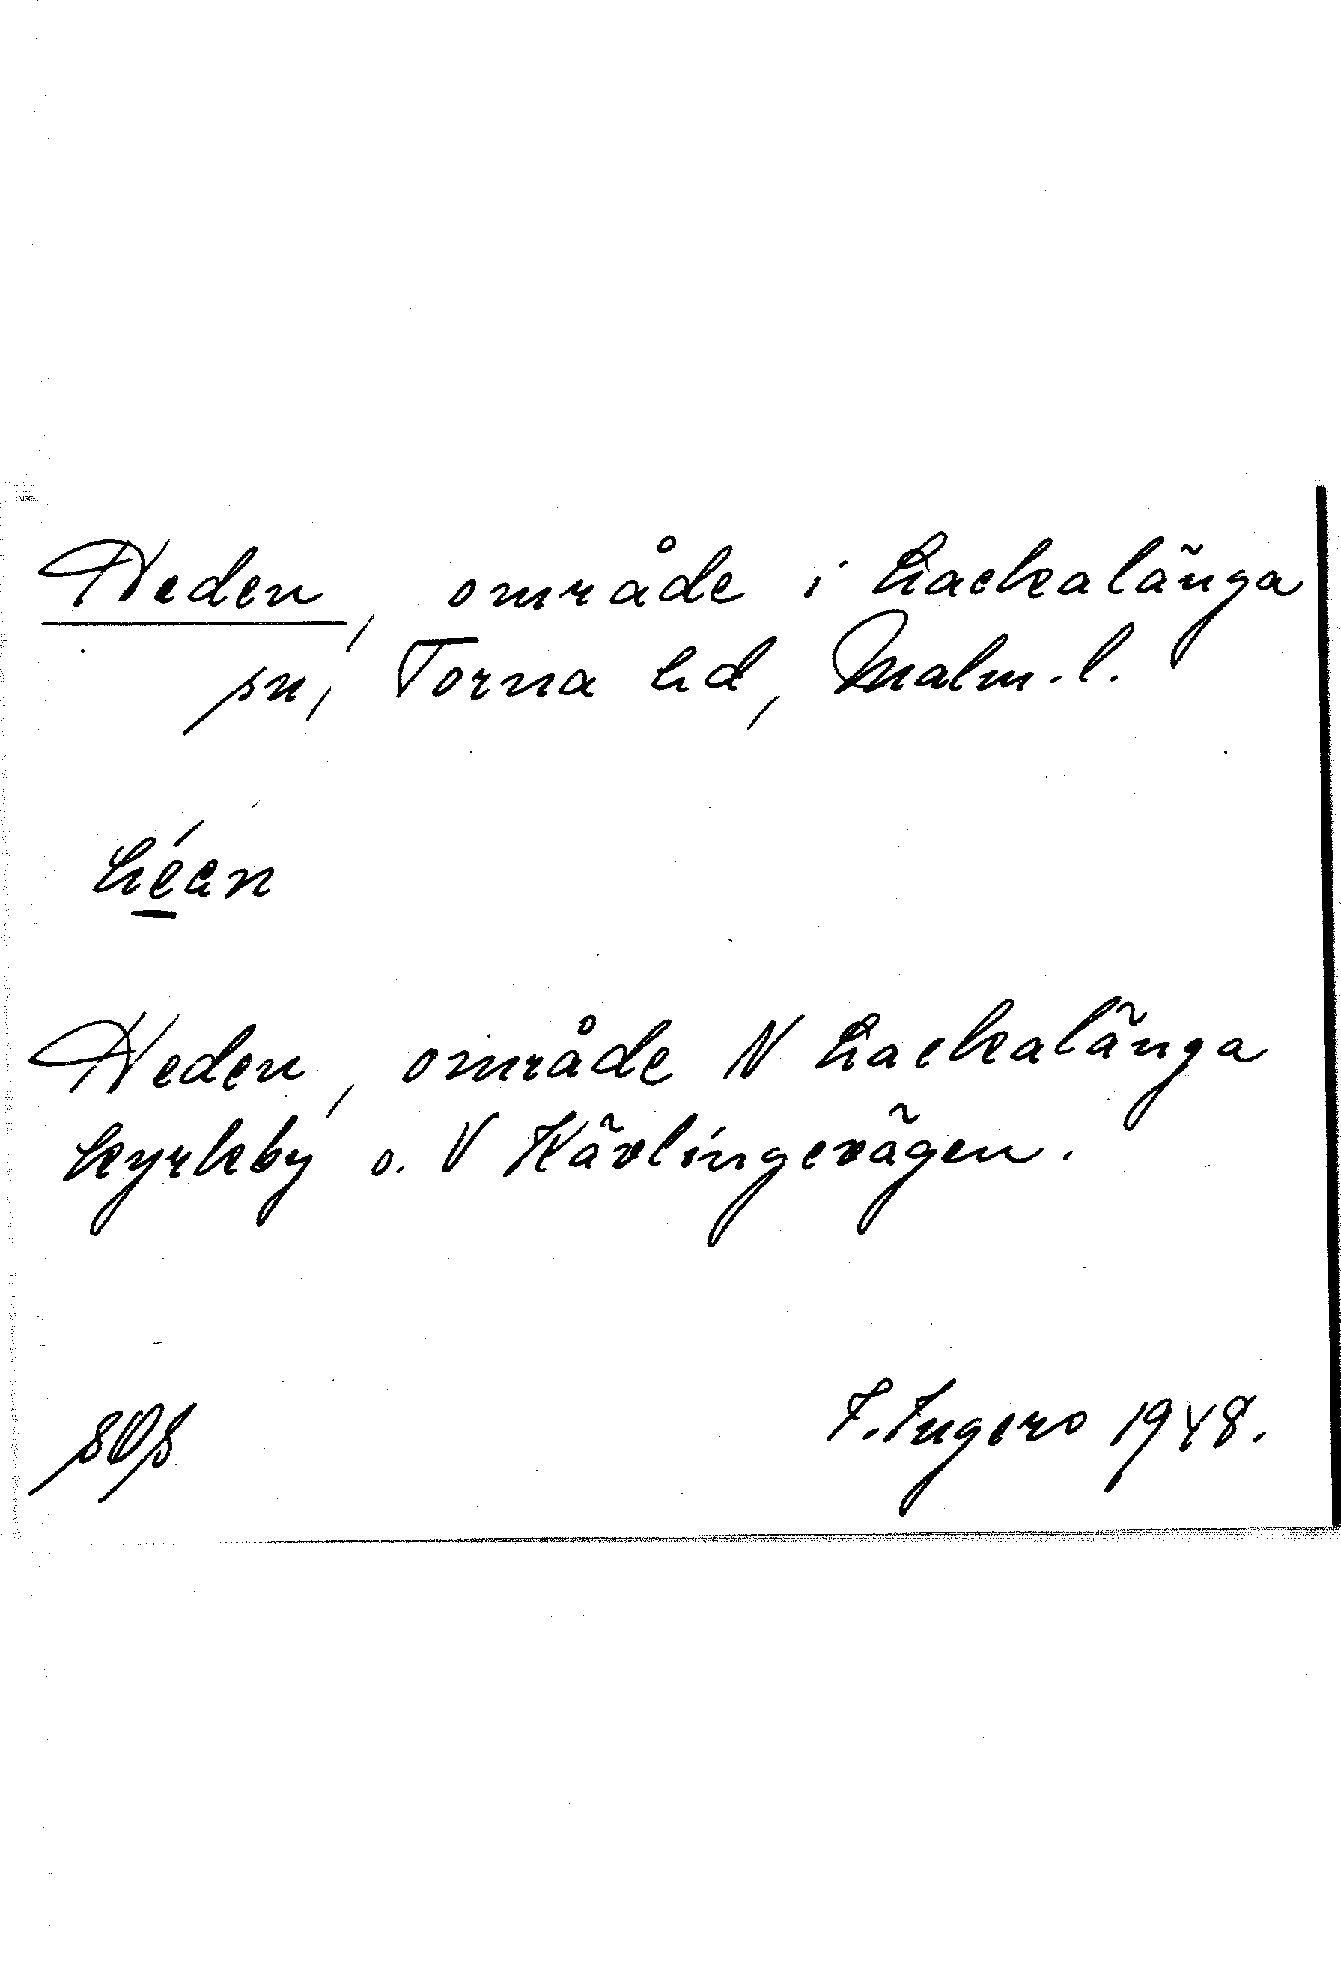 Heden, område i Lackalänga
sn, Torna hd, Malm. l.
héan
Heden, område N Lackalänga
kyrkby o. V Kävlingevägen.
F. Ingers 1948.